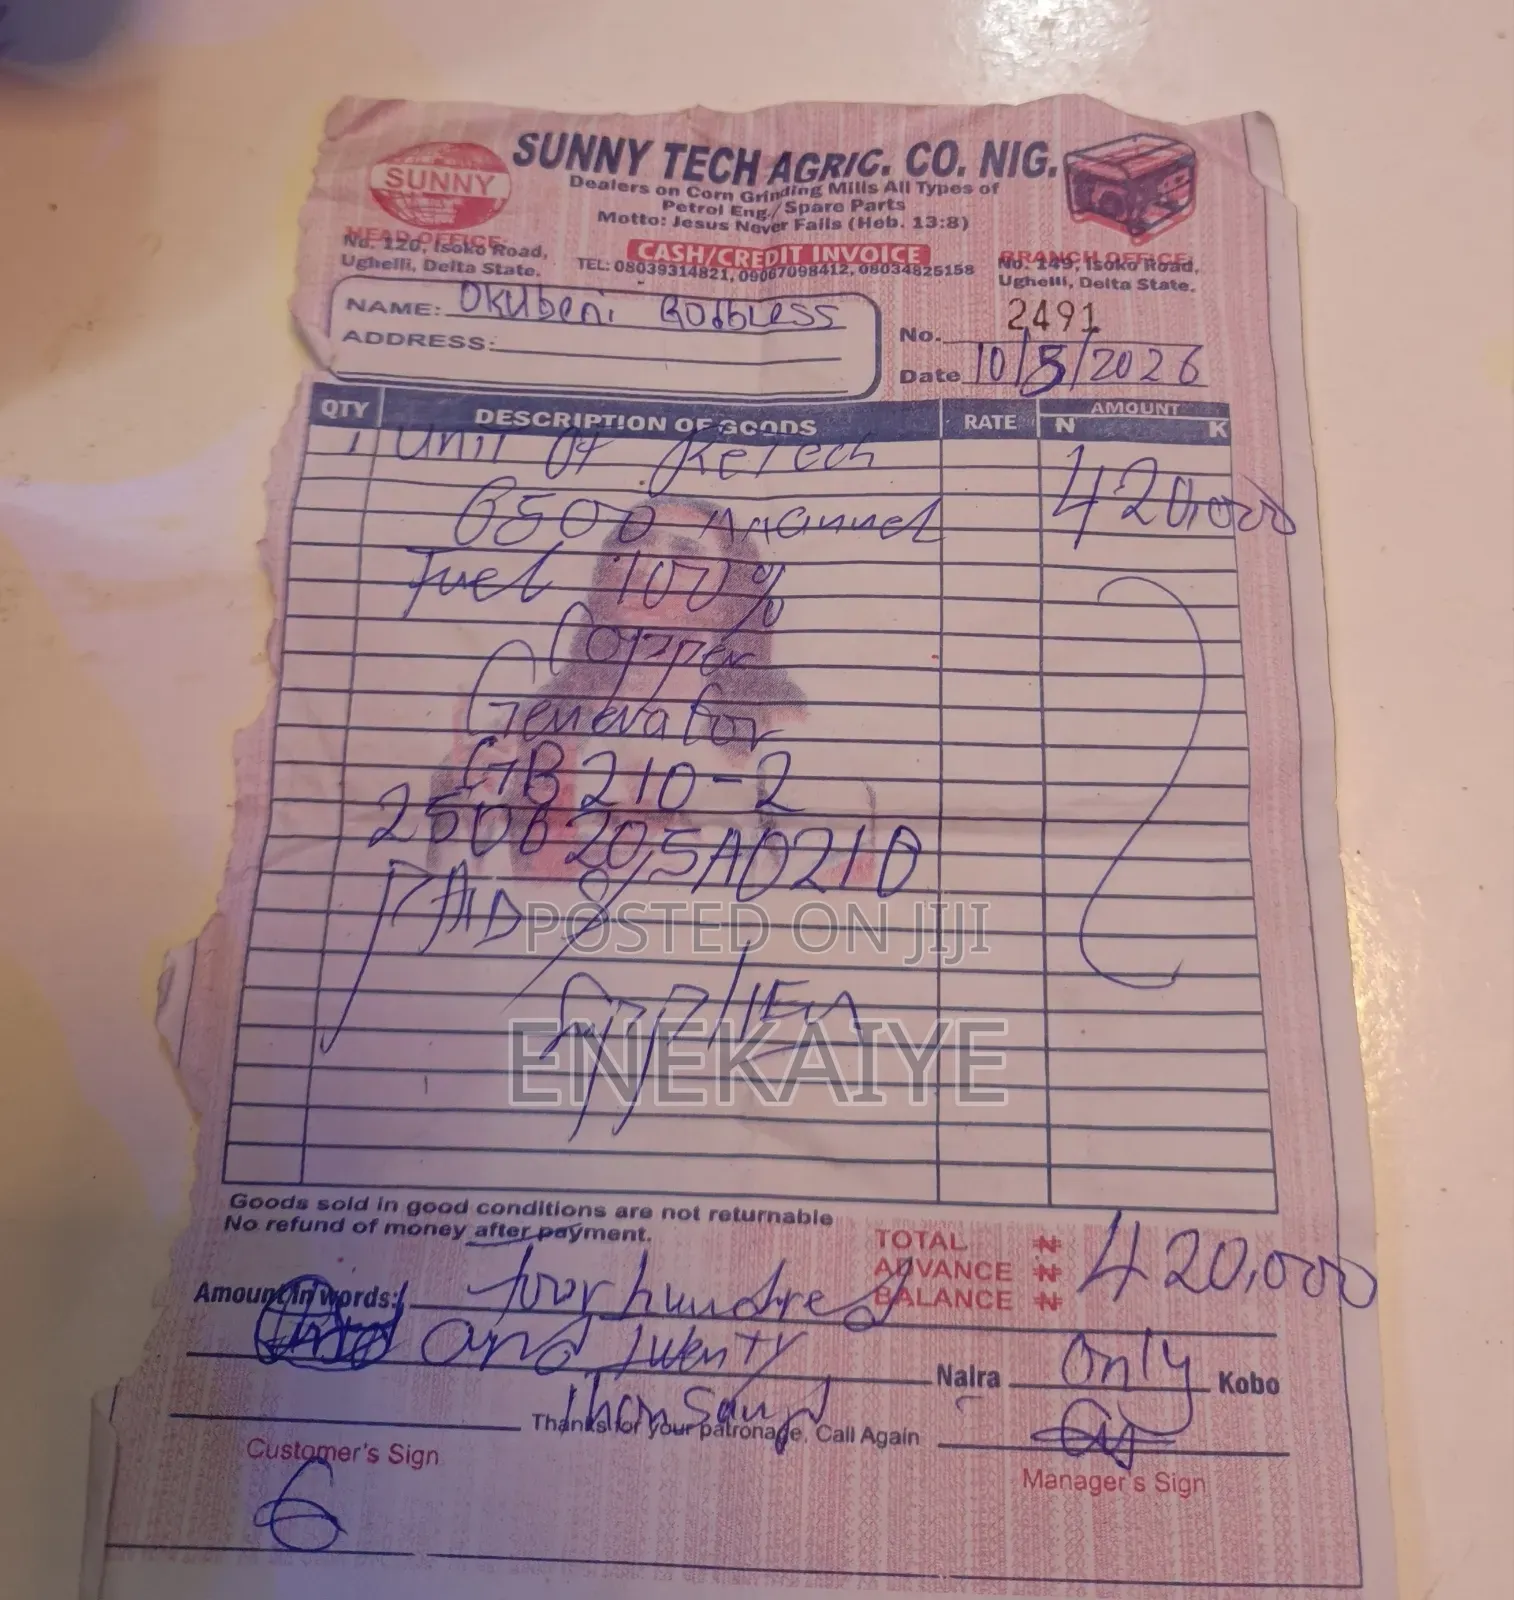 SUNNY
SUNNY TECH AGRIC. CO. NIG.
Dealers on Corn Grinding Mills All Types of
Petrol Eng./Spare Parts
Motto: Jesus Never Fails (Heb. 13:8)
CASH/CREDIT INVOICE
TEL: 08039314821, 09067098412, 08034825158
HEAD OFFICE:
No. 120, Isoko Road,
Ughelli, Delta State.
BRANCH OFFICE:
No. 149, Isoko Road,
Ughelli, Delta State.
NAME: Okubeni Godbless
ADDRESS:
No. 2491
Date 10/5/2026
QTY DESCRIPTION OF GOODS RATE AMOUNT
N K
1 Unit of ReTech 420,000
6500 Mannuel
Fuel 100%
Copper
Generator
GB210-2
250820,5A0210
PAID &
SUPPLIED
POSTED ON JIJI
ENEKAIYE
Goods sold in good conditions are not returnable
No refund of money after payment.
TOTAL ₦ 420,000
ADVANCE ₦
BALANCE ₦
Amount in words: four hundred
and twenty Naira only Kobo
thousand
Thanks for your patronage, Call Again
Customer's Sign
Manager's Sign